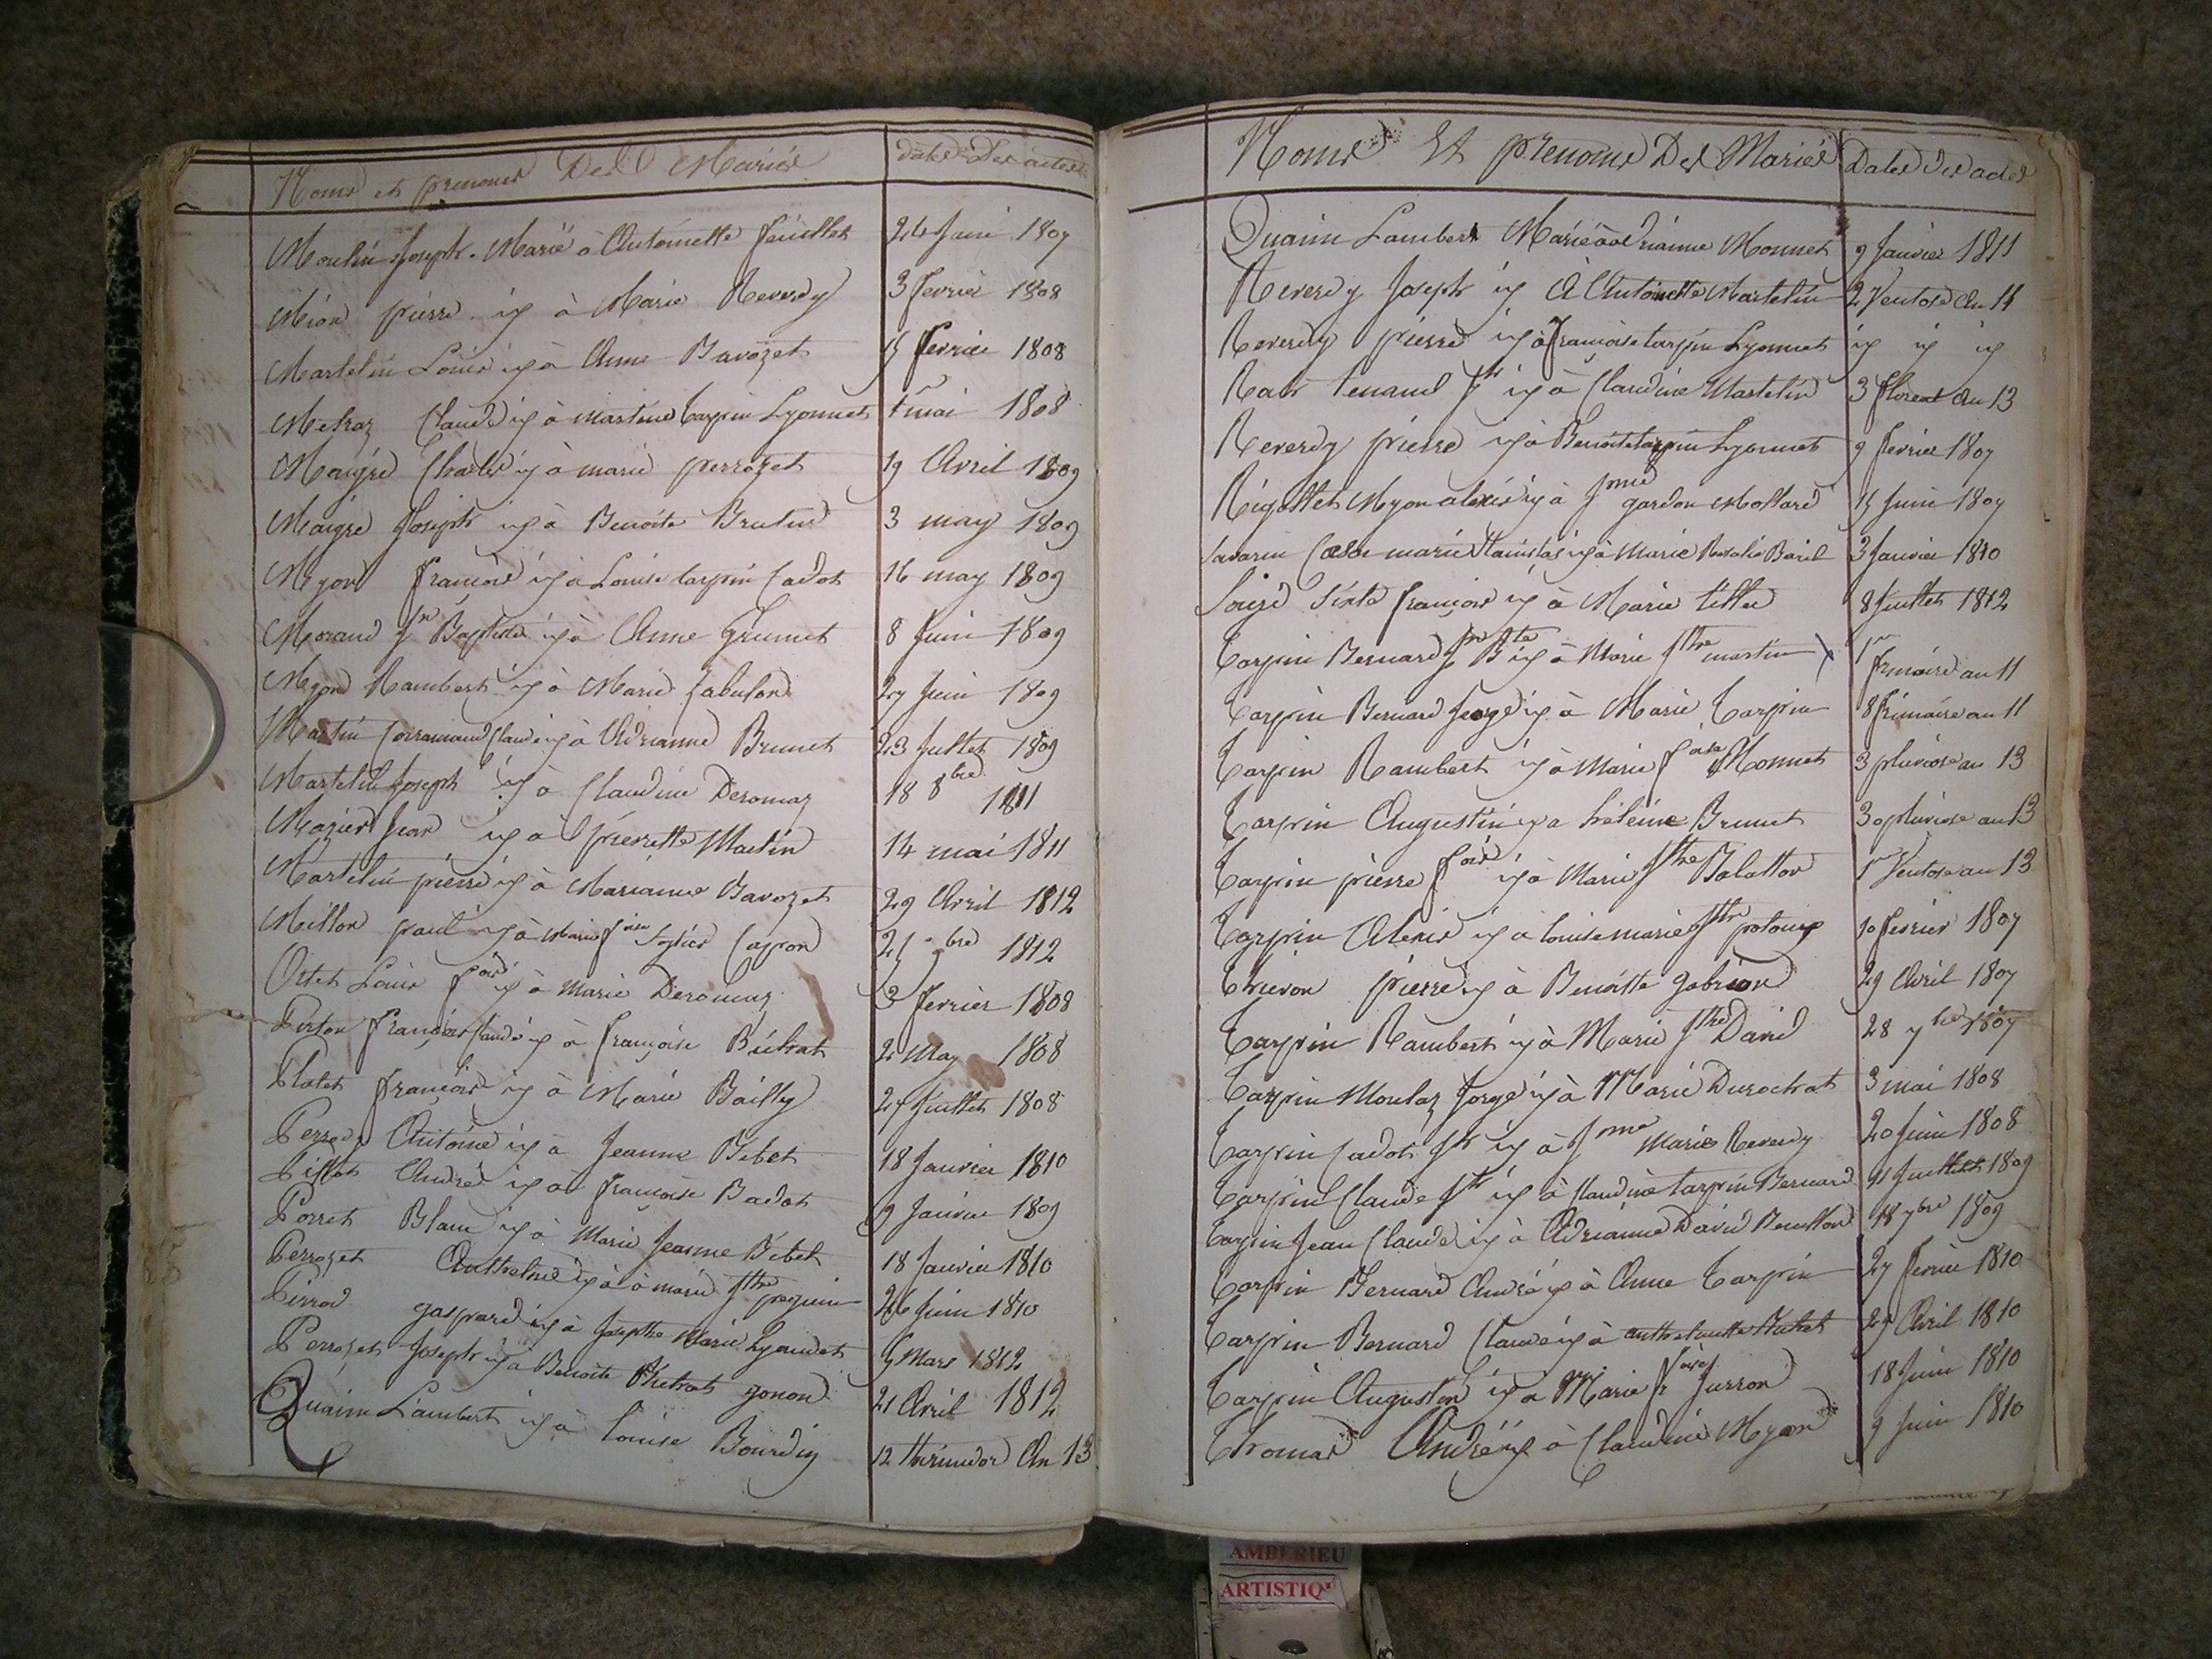 Noms et prenoms Des Mariés dates Des actes
Moulin Joseph. Marié à Antoinette feuillet 24 Juin 1807
Mion pierre id à Marie Reverdy 3 fevrier 1808
Martelin Louis id à Anne Bavozet 15 fevrier 1808
Metraz Claude id à Martine tarpin Lyonnet 1er mai 1808
Maigre Charles id à marie perrozet 19 Avril 1809
Maigre Joseph id à Benoite Brutus 3 may 1809
Myon françois id à Louise tarpin Cadot 16 may 1809
Morand Jn Baptiste id à Anne Grumet 8 Juin 1809
Myon Rambert id à Marie Sabulon 27 Juin 1809
Martin Claude id à Adrianne Brunet 23 Juillet 1809
Martelin Joseph id à Claudine Deromaz 18 8bre 1811
Mazier Jean id à pierrette Martin 14 mai 1811
Martelin pierre id à Marianne Bavozet 29 Avril 1812
Millon paul id à Marie foise Capon 9bre 1812
Ortet Louis fois id à Marie Deromaz 3 fevrier 1808
françois Claude id à françoise Buhat 2 May 1808
Platet françois id à Marie Bailly 27 Juillet 1808
Perrod Antoine id à Jeanne Bibet 18 Janvier 1810
Pillot André id à françoise Badot 9 Janvier 1809
Porret Blain id à Marie Jeanne Bibet 18 Janvier 1810
Perrozet Anthelme id à marie Jthe 26 Juin 1810
Perrod gaspard id à Josephte Marie Lyaudet 5 Mars 1812
Perrozet Joseph id à Benoite gonon 21 Avril 1812
Quaim Lambert id à Louise Bourdin 12 thermidor An 13
Noms Et prenoms Des Mariés Dates des actes
Quaim Lambert Marié à adrianne Monnet 9 Janvier 1811
Reverdy Joseph id à Antoinette Martelin 2 Ventose An 11
Reverdy pierre id à françoise tarpin Lyonnet id id id
tenand Jh id à Claudine Martelin 3 floreal An 13
Reverdy pierre id à Benoite tarpin Lyonnet 9 fevrier 1807
Rigollet Myon alexis id à Jme gardon Mollard 15 Juin 1807
Savarin Coesar marie Stanislas id à Marie Rosalie Bavil 3 Janvier 1810
Sixte françois id à Marie tiller 8 Juillet 1812
Tarpin Bernard Jn Bte id à Marie Jthe martin 1er frimaire an 11
Tarpin Bernard Jorge id à Marie Tarpin 8 frimaire an 11
Tarpin Rambert id à Marie foise Monnet 3 pluviose an 13
Tarpin Augustin id à héléine Brunet 30 pluviose an 13
Tarpin pierre fois id à Marie Jthe Balatton 1er Ventose an 13
Tarpin Alexis id à louise marie Jthe 10 fevrier 1807
Thevon pierre id à Benoitte gabrion 29 Avril 1807
Tarpin Rambert id à Marie Jthe David 28 7bre 1807
Tarpin Moulaz Jorge id à Marie Durochat 3 mai 1808
Tarpin Cadot Jh id à Jme Marie Reverdy 20 Juin 1808
Tarpin Claude Jh id à Claudine tarpin Bernard 11 Juillet 1809
Tarpin Jean Claude id à Adrianne David Bouillon 18 7bre 1809
Tarpin Bernard André id à Anne Tarpin 27 fevrier 1810
Tarpin Bernard Claude id à anthelmette Buhat 29 Avril 1810
Tarpin Augustin id à Marie foise Jusson 18 Juin 1810
Thomas André id à Claudine Myon 9 Juin 1810
AMBERIEU
ARTISTIQ